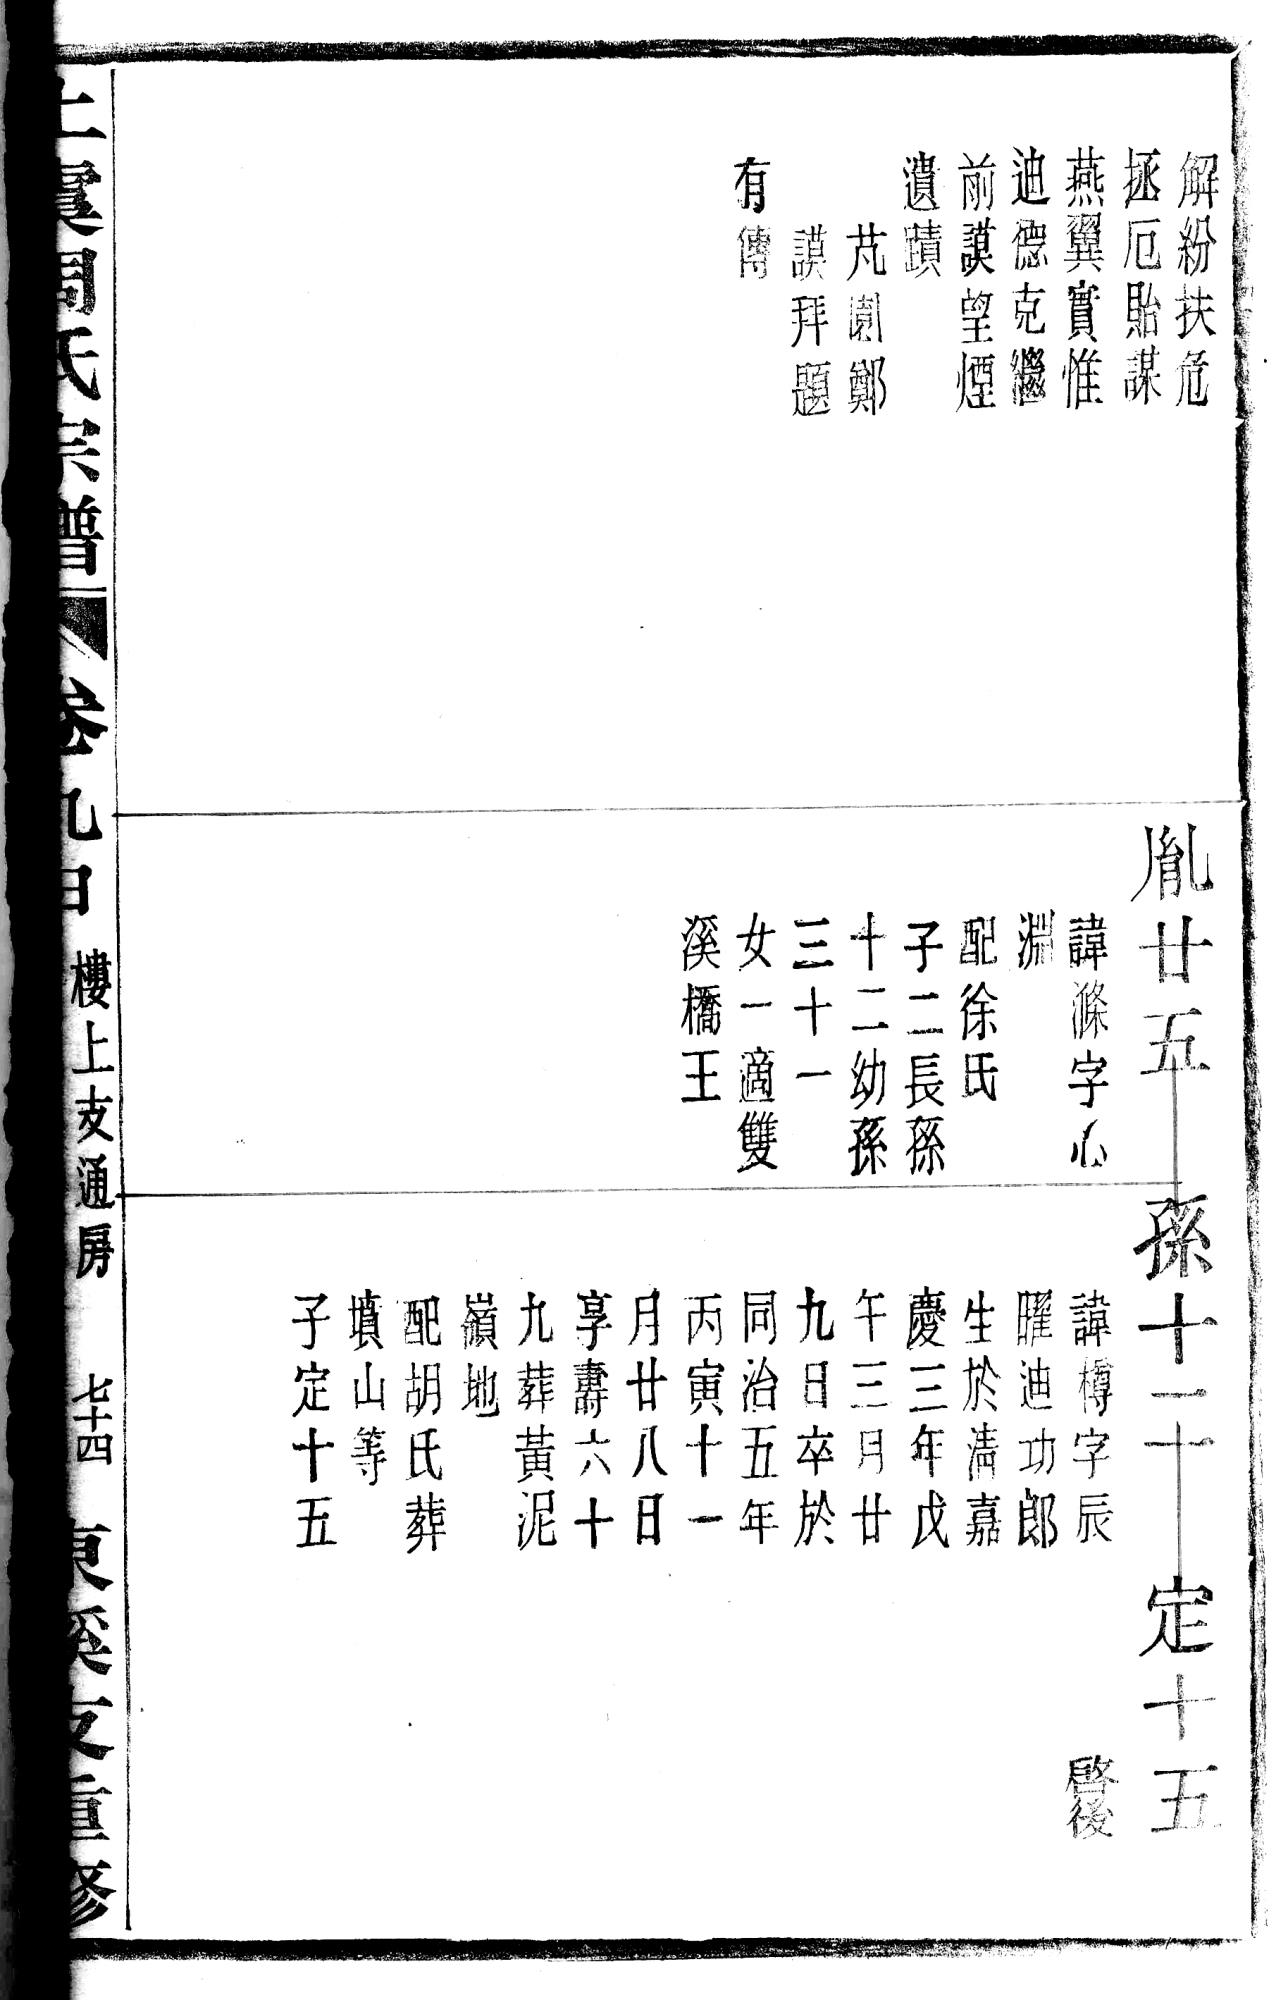 解紛扶危
拯厄貽謀
燕翼實惟
迪德克繼
前謨望煙
遺蹟
芃園鄭
謨拜題
有傳
胤廿五
諱滌字心
淵
配徐氏
子二長孫
十二幼孫
三十一
女一適雙
溪橋王
孫十二
諱樽字辰
曜迪功郎
生於清嘉
慶三年戊
午三月廿
九日卒於
同治五年
丙寅十一
月廿八日
享壽六十
九葬黃泥
嶺地
配胡氏葬
墳山等
子定十五
定十五
啓後
上虞周氏宗譜
卷九日
樓上支通房
七十四
東溪支重修